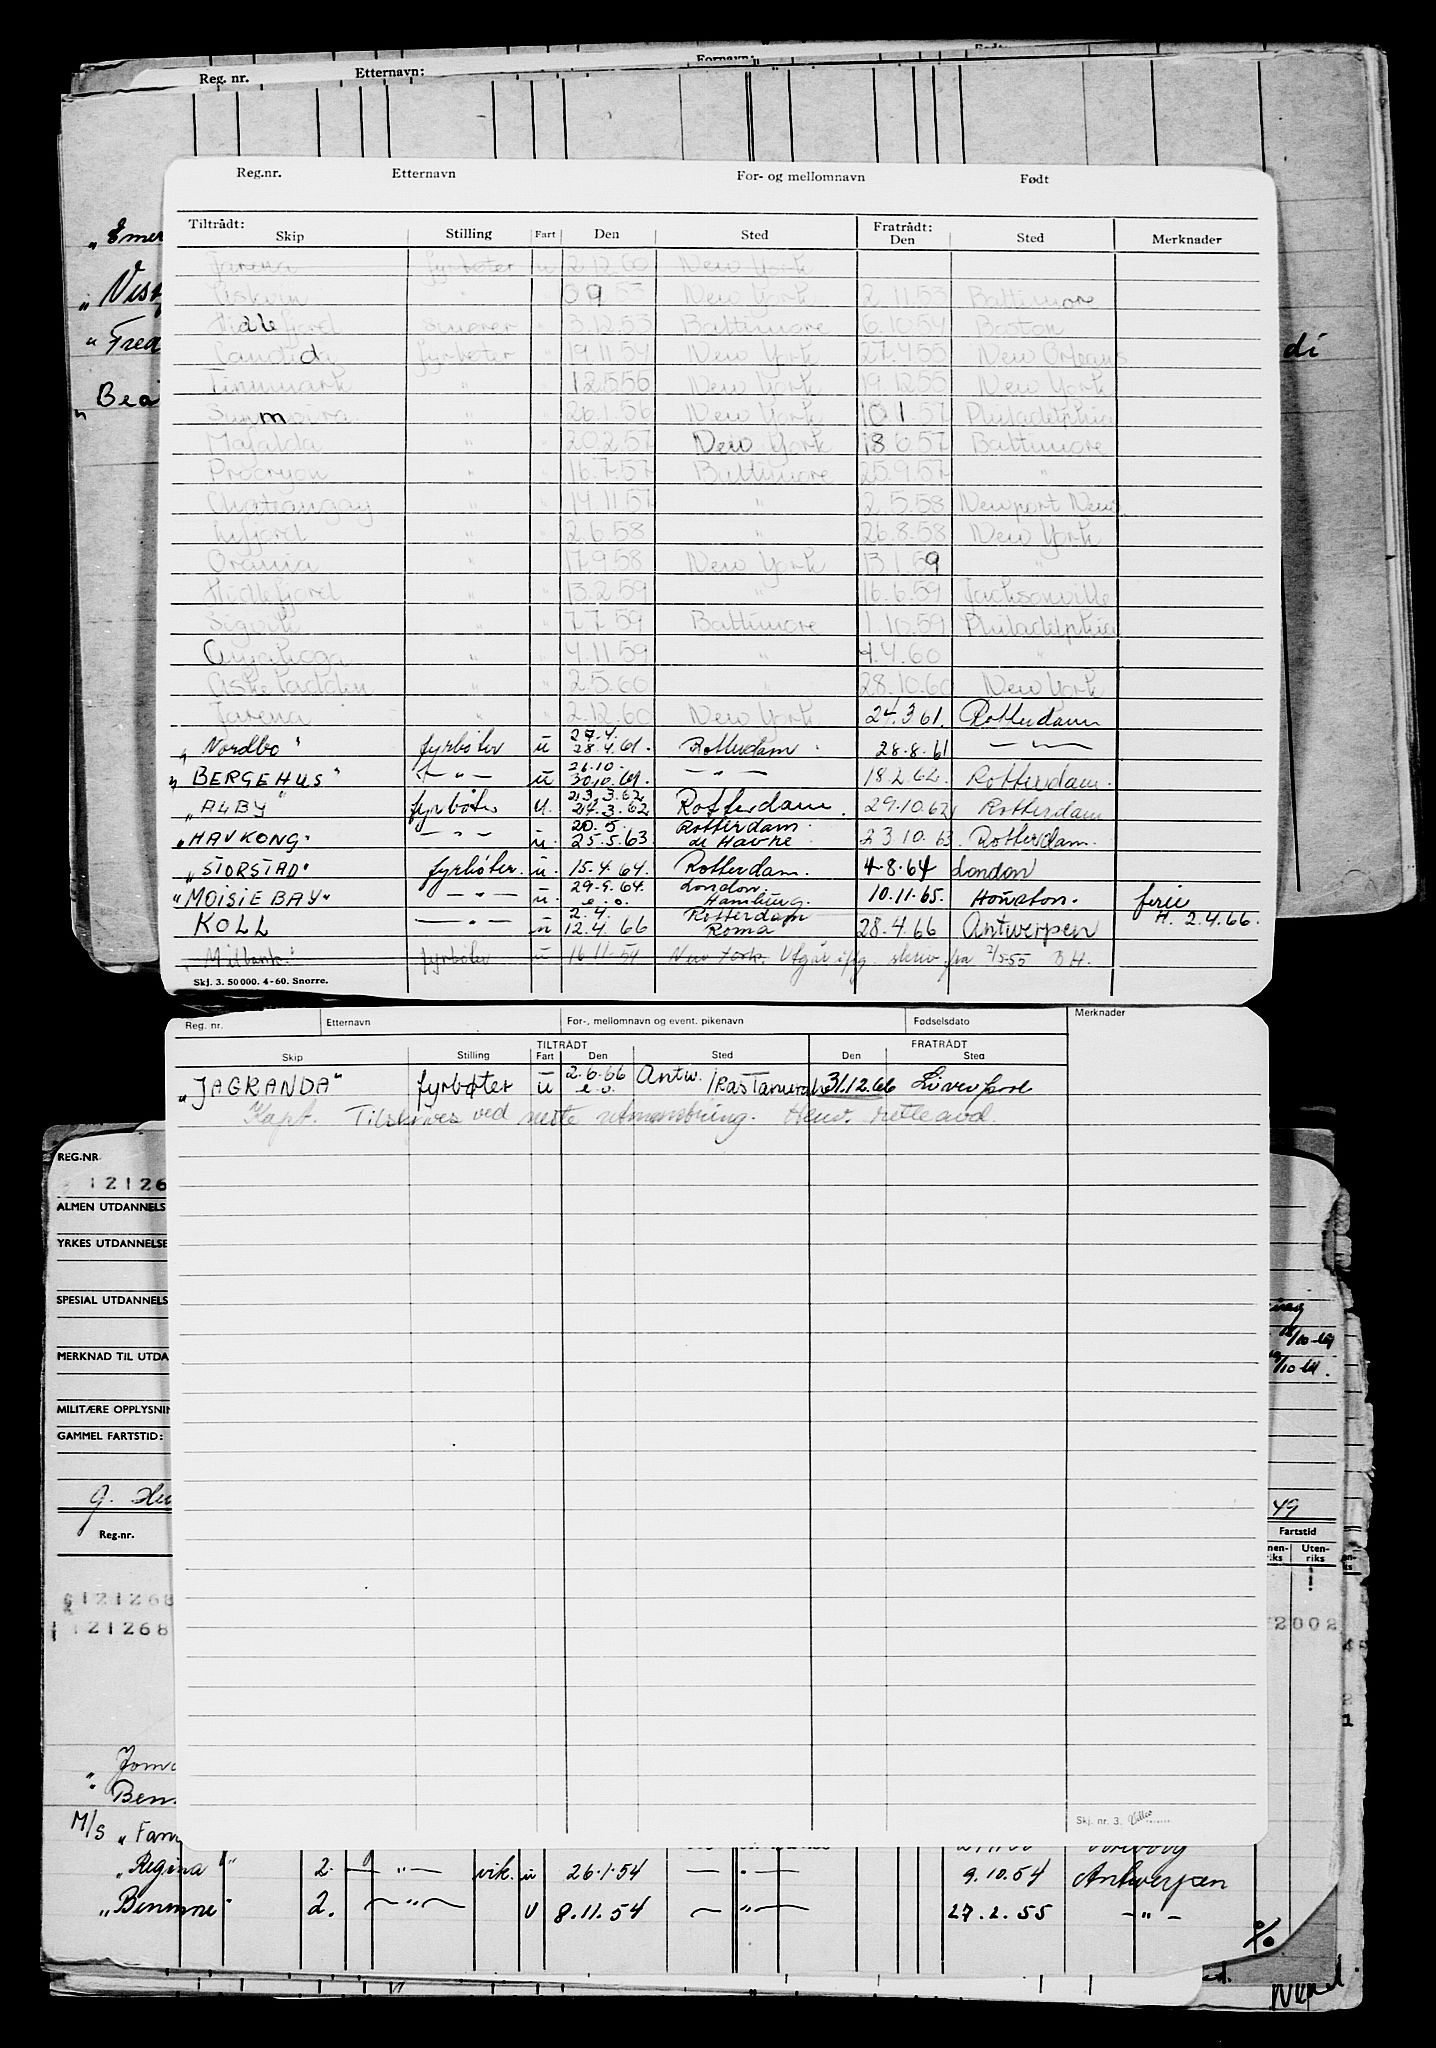 Reg. nr. Etternavn: Fornavn: Født:
Reg.nr. Etternavn For- og mellomnavn Født
Tiltrådt: Skip Stilling Fart Den Sted Fratrådt: Den Sted Merknader
Jarena fyrbøter u 2.12.60 New York
9 53 New York 2.11.53 Baltimore
Hidlefjord smører " 3.12.53 Baltimore 6.10.54 Boston
Candida fyrbøter " 19.11.54 New York 27.4.55 New Orleans
Finnmark " " 12.5.55 New York 19.12.55 New York
" " 26.1.56 New York 10.1.57 Philadelphia
Mafalda " " 20.2.57 New York 18.6.57 Baltimore
Procyon " " 16.7.57 Baltimore 25.9.57 "
Chateaugay " " 14.11.57 " 2.5.58 Newport News
" " 2.6.58 " 26.8.58 New York
Orania " " 17.9.58 New York 13.1.59 "
Hidlefjord " " 13.2.59 " 16.6.59 Jacksonville
Sigvik " " 7.7.59 Baltimore 1.10.59 Philadelphia
Cuyahoga " " 4.11.59 " 4.4.60 "
Askeladden " " 2.5.60 " 28.10.60 New York
Jarena " " 2.12.60 New York 24.3.61. Rotterdam
"Nordbo" fyrbøter u 27.4. 28.4.61. Rotterdam 28.8.61 — " —
"BERGEHUS" — " — u 26.10. 30.10.61. — " — 18.2.62 Rotterdam.
"ALBY" fyrbøter u. 23.3.62 24.3.62 Rotterdam. 29.10.62 Rotterdam
"HAVKONG" — " — u. 20.5. 25.5.63 Rotterdam. le Havre 23.10.63. Rotterdam.
"STORSTAD" fyrbøter. u. 15.4.64. Rotterdam. 4-8-64 London
"MOISIE BAY" — " — u. 29.9.64. e.o. London. Hamburg. 10.11.65. Houston. ferie
KOLL — " — u 2.4. 12.4.66 Rotterdam Roma 28.4.66 Antwerpen H. 2.4.66.
"Milbank" fyrbøter u 16.11.54 New York. Utgår ifg. skriv. fra 7/5-55 BH.
Skj. 3. 50 000. 4-60. Snorre.
Reg. nr. Etternavn For-, mellomnavn og event. pikenavn Fødselsdato Merknader
TILTRÅDT FRATRÅDT
Skip Stilling Fart Den Sted Den Sted
"JAGRANDA" fyrbøter u 2.6.66 e.o. Antw. / Ras Tanura 31.12.66 Liverpool
Kapt. Tilskrives ved neste utmønstring. Henv. rulleavd.
REG.NR
12126
ALMEN UTDANNELS
YRKES UTDANNELSE
SPESIAL UTDANNELS
MERKNAD TIL UTDA
MILITÆRE OPPLYSNIN
GAMMEL FARTSTID:
Reg.nr. 49
Fartstid
Uten-riks
121268
121268 2002
M/S
"Regina" 2. — " — vik. u 26.1.54 — " — 9.10.54 Antwerpen
"Benmore" 2. — " — u 8.11.54 — " — 27.2.55 — " —
Skj. nr. 3.